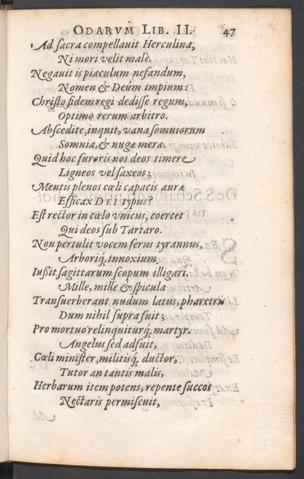 ODARVM LIB. II. 47
Ad sacra compellauit Herculina,
Ni mori velit malè.
Negauit is piaculum nefandum,
Nomen & Deûm impium:
Christo fidem regi dedisse regum,
Optimo rerum arbitro.
Abscedite, inquit, vana somniorum
Somnia, & nugæ meræ.
Quid hoc furoris nos deos timere
Ligneos vel saxeos;
Mentis plenos cæli capacis auræ
Efficax DEI typus?
Est rector in cælo vnicus, coercet
Qui deos sub Tartaro.
Non pertulit vocem ferus tyrannus,
Arboriq́, innoxium,
Iussit sagittarum scopum illigari.
Mille, mille & spicula
Transuerberant nudum latus, pharetris
Dum nihil supra fuit;
Pro mortuo relinquiturq́, martyr.
Angelus sed adfuit,
Cæli minister, militisq́, ductor,
Tutor an tantis malis,
Herbarum item potens, repente succos
Nectaris permiscuit,